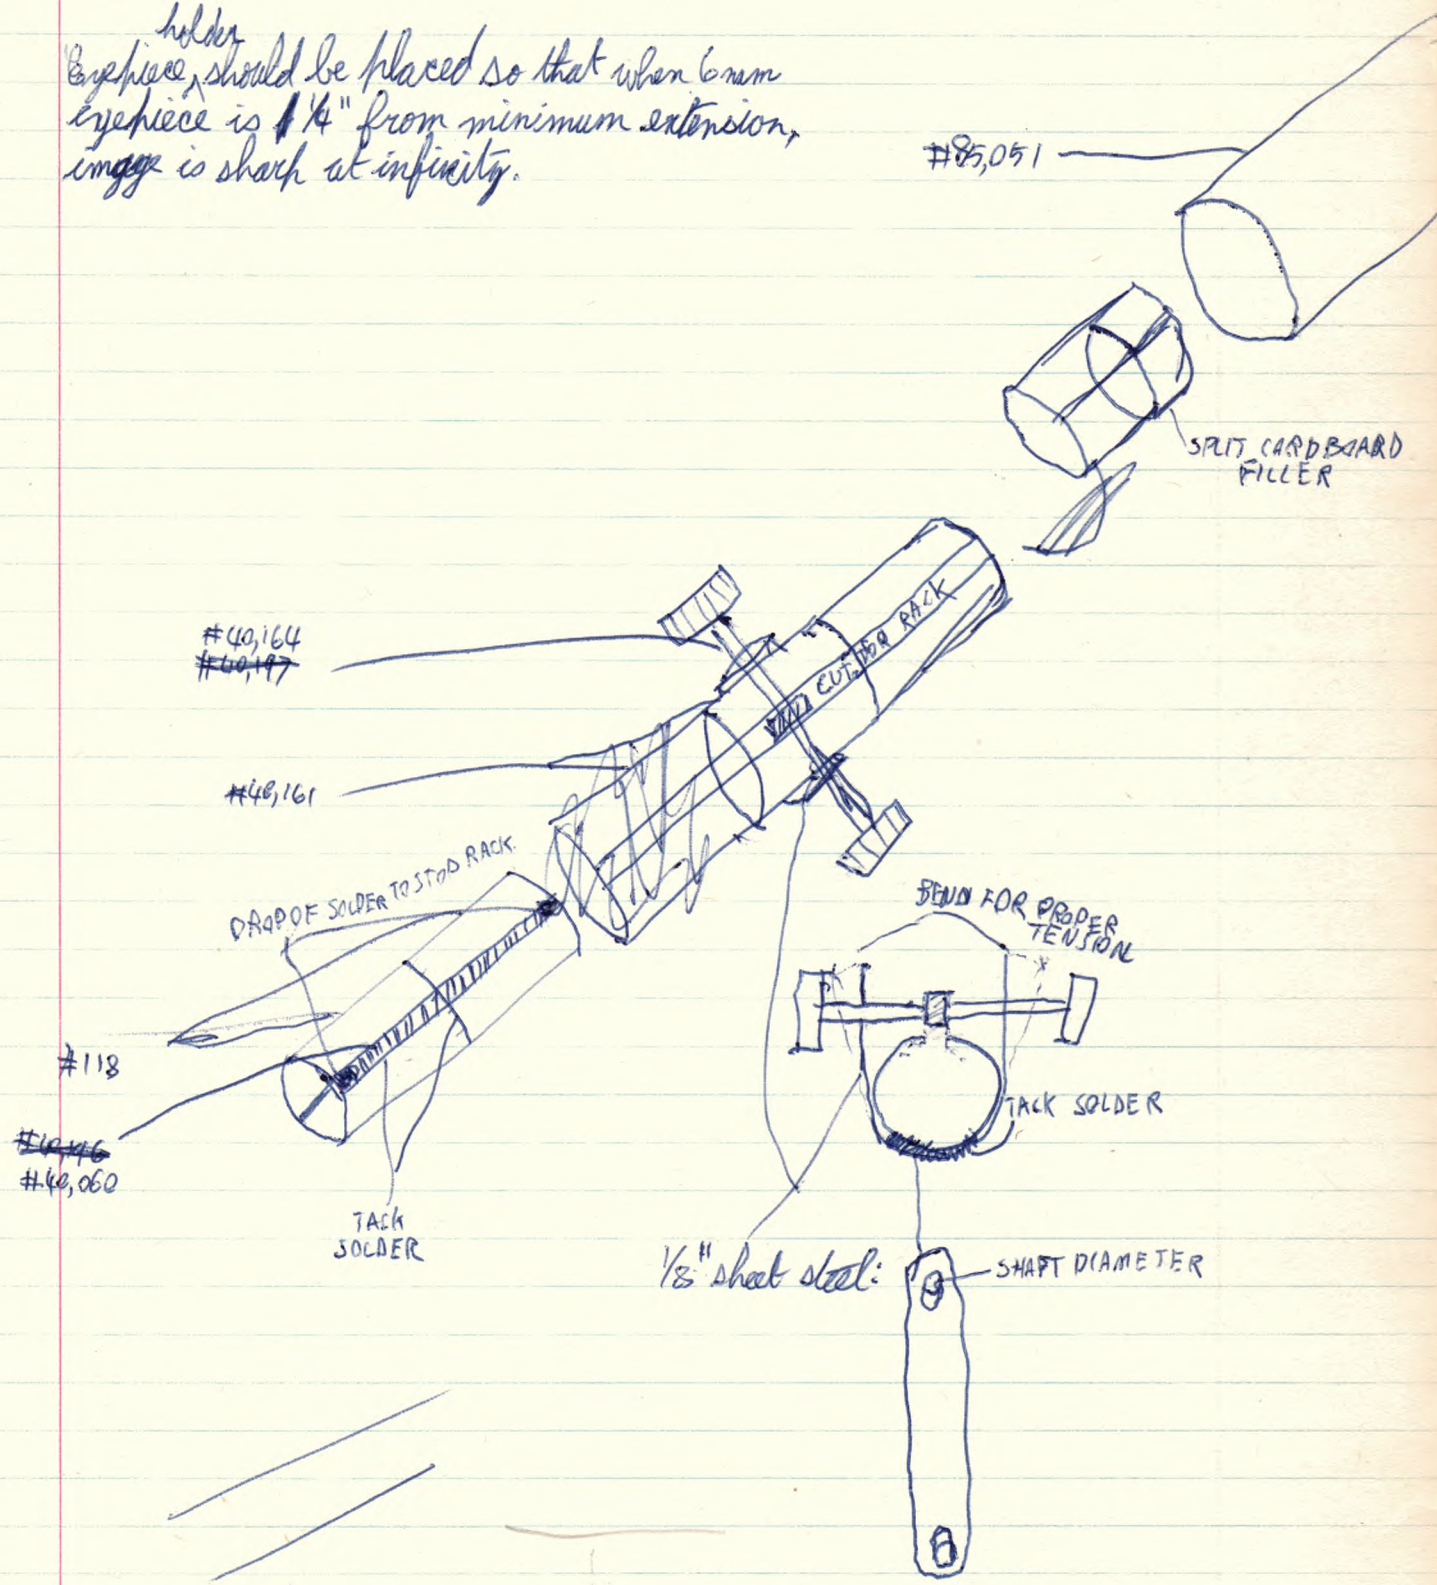 holder
Eyepiece ^ should be placed so that when 6mm
eyepiece is 1/4" from minimum extension,
image is sharp at infinity.
#85,051
SPLIT CARDBOARD
FILLER
#40,164
#40,197
CUT FOR RACK
#40,161
DROP OF SOLDER TO STOP RACK.
BEND FOR PROPER
TENSION
#118
TACK SOLDER
#40,060
TACK
SOLDER
1/8" sheet steel:
SHAFT DIAMETER